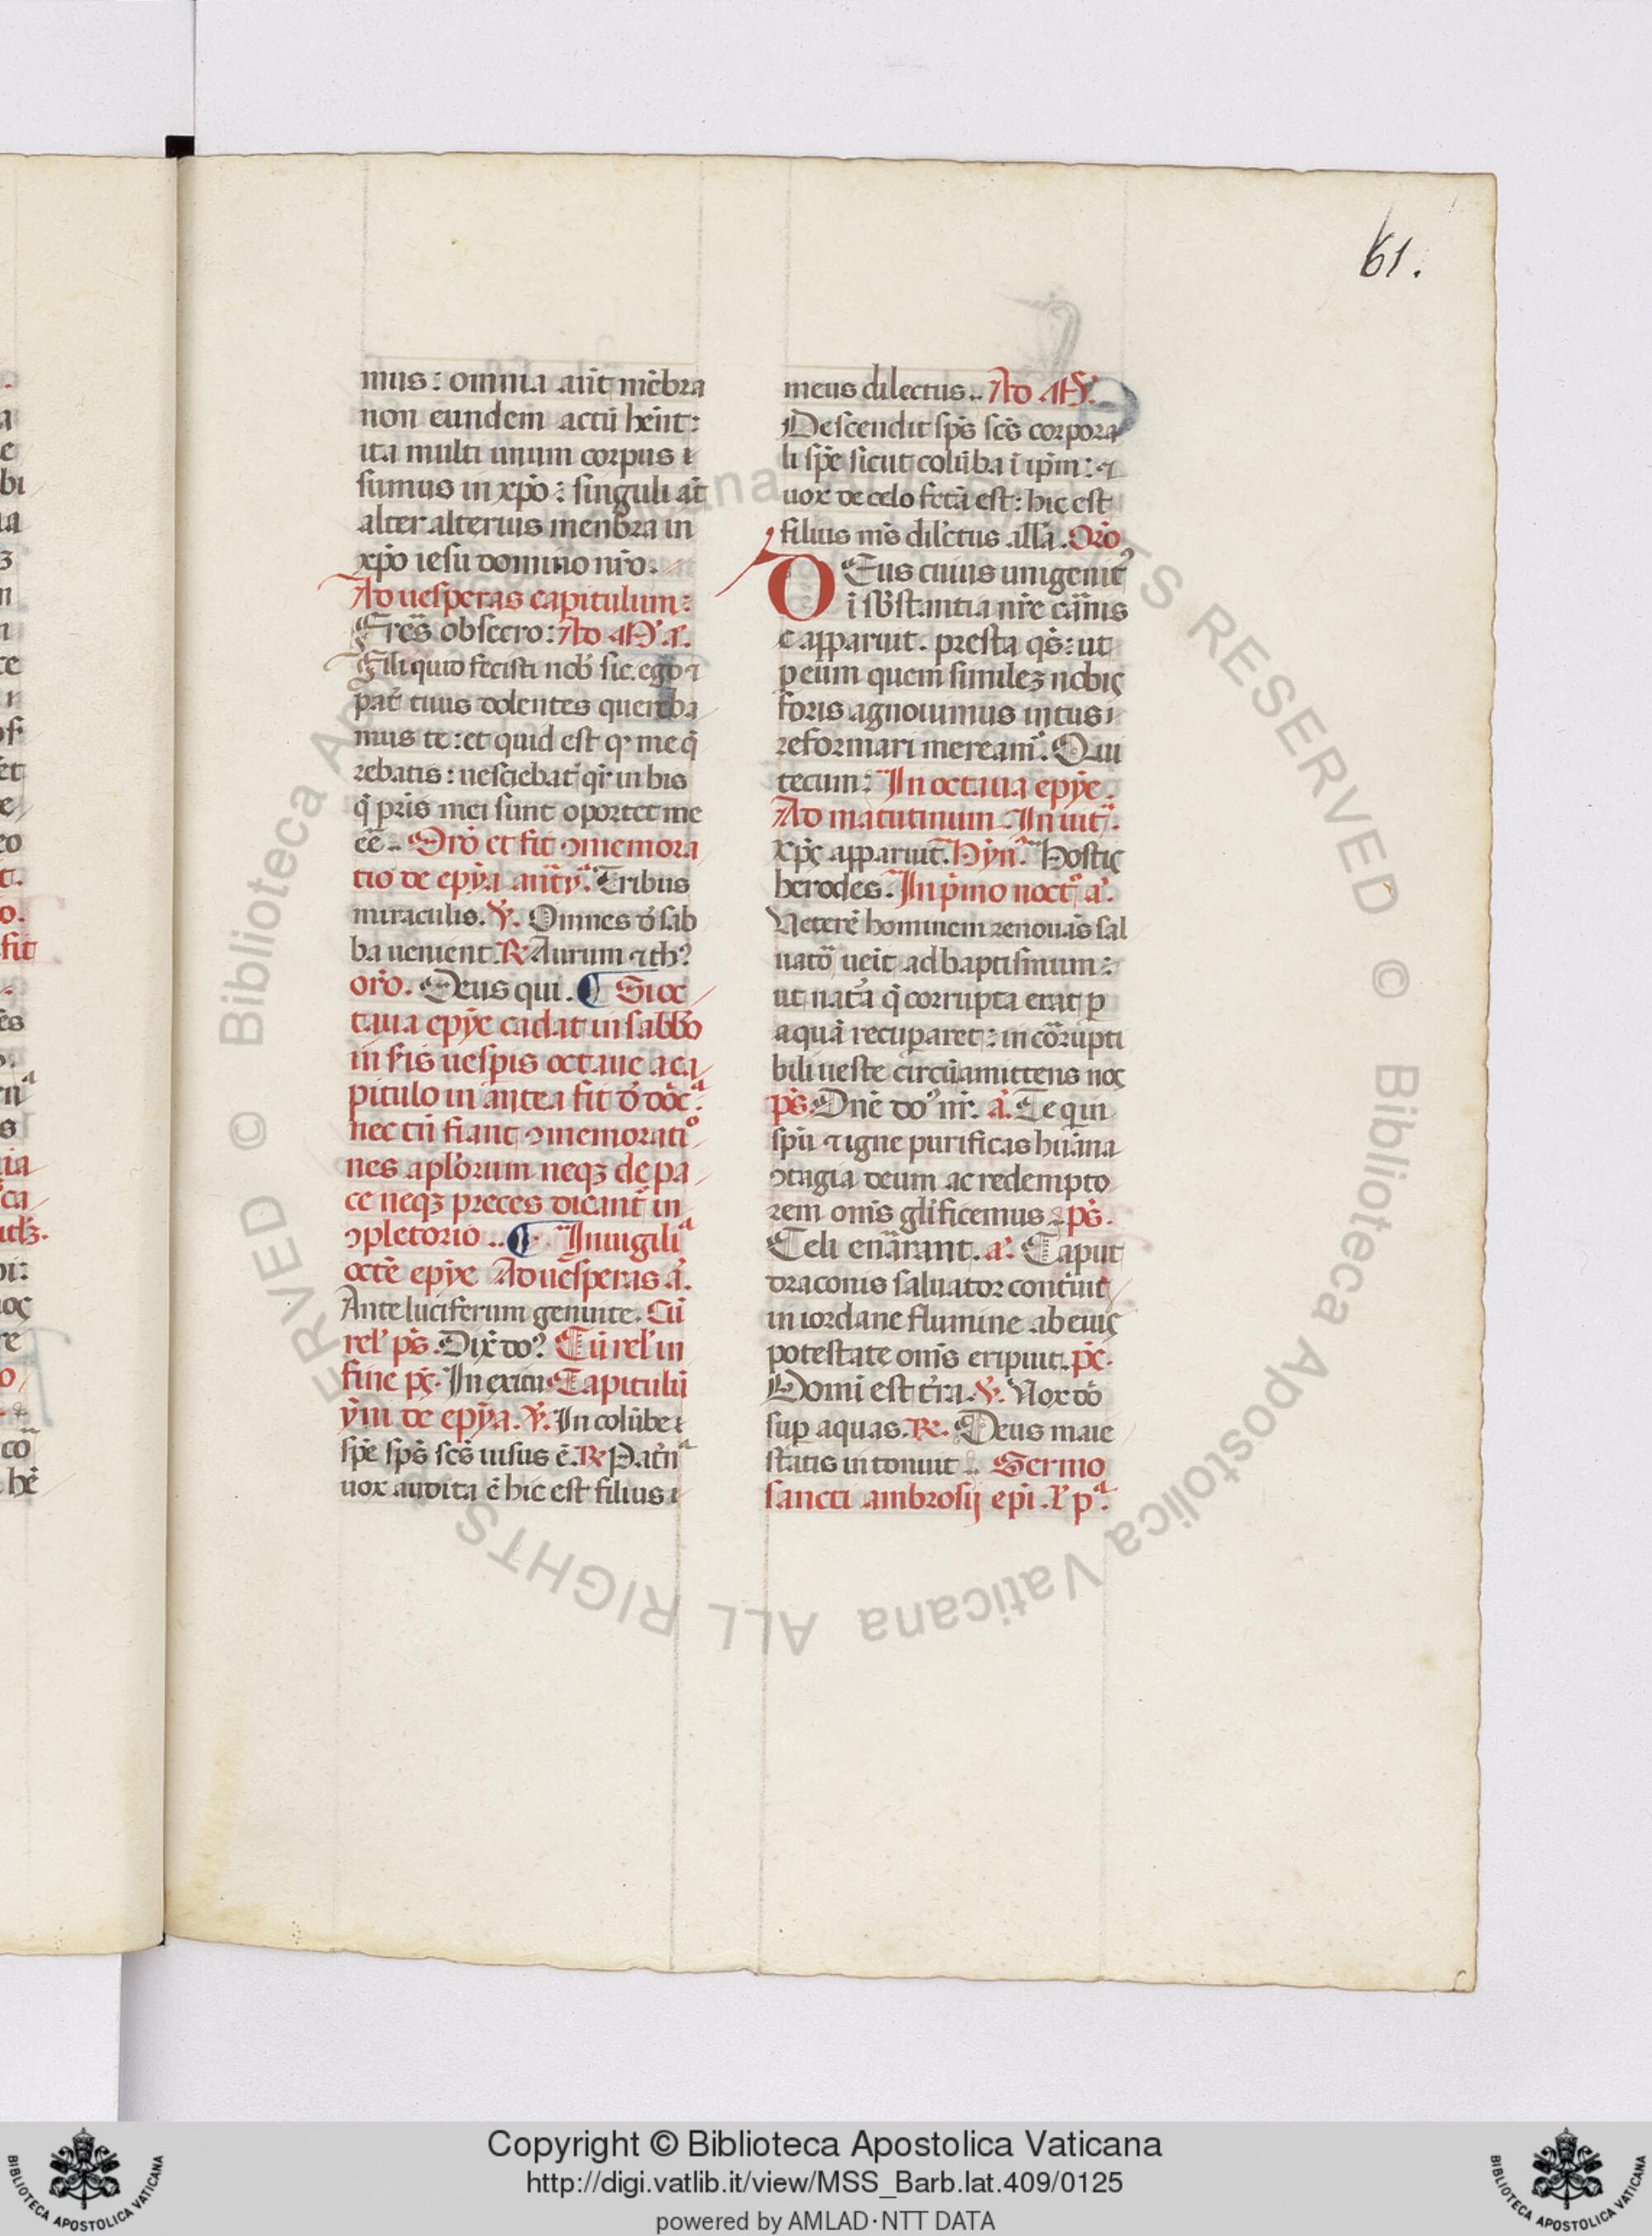 61.
mus: omnia aūt mēbra
non eundem actū hēnt:
ita multi unum corpus
sumus in xp̄o: singuli aūt
alter alterius menbra in
xp̄o iesu domino nr̄o.
Ad uesperas capitulum:
Fr̄es obsecro: Ad M̄ a.
Fili quid fecisti nob̄ sic. ego ⁊
pat̄ tuus dolentes quereba
mus te: et quid est qꝛ me q̄
rebatis: nesciebat̄ qꝛ in his
q̄ pr̄is mei sunt oportet me
eē.. Or̄o et fit ꝯmemora
tio de epyā. Tribus
miraculis. ℣. Omnes d̄ sab
ba uenient. ℟ Aurum ⁊ th?
or̄o. Deus qui. ¶ Si oc
taua epye cadat in sabb̄o
in sc̄is uesp̄is octaue a ca
pitulo in antea fit d̄ dōc.
nec tn̄ fiant ꝯmemoratiº
nes apl̄orum neqꝫ de pa
ce neqꝫ preces dicant̄ in
ꝯpletorio.. ¶ In uigiliª
octē epye Ad uesperas a.
Ante luciferum genite. Cū
rel̓ ps̄. Dix̄ do? Cū rel̓ in
fine pꝭ. In exitu. Capitulū
ym̄ de epyā. ℣. In colūbe
sp̄e sp̄s sc̄s uisus ē. ℟ Pat̄nª
uox audita ē hic est filius
meus dilectus.. Ad M̄.
Descendit sp̄s sc̄s corpora
li sp̄e sicut colūba ī ip̄m: ⁊
uox de celo fc̄tā est: hic est
filius m̄s dil̄ctus all̄a. Or̄o
DEus cuius unigenitꝰ
ī sb̄stantia nr̄e carnis
apparuit. presta qs̄: ut
p eum quem simileꝫ nobis
foris agnouimus intus
reformari mereamꝛ. Qui
tecum: In octaua epye.
Ad matutinum. Inuit̄.
Xp̄c apparuit. Hyn̄. Hostis
herodes. In p̄mo noct̄º a.
Veterē hominem renouās sal
uatō ueīt ad baptismum:
ut nat̄a q̄ corrupta erat p
aquā recuparet: incōrupti
bili ueste circūamittens nos
ps̄. Dn̄e doꝰ nr̄. a. Te qui
sp̄u ⁊ igne purificas hūana
ꝯtagia deum ac redempto
rem om̄s gl̄ificemus. ps̄.
Celi enārant. a. Caput
draconis saluator contriuit
in iordane flumine ab eius
potestate om̄s eripuit. pꝭ.
Domī est t̄ra. ℣. Vox dō
sup aquas. ℟. Deus maie
statis intonuit. Sermo
sancti ambrosij epī. pª.
Copyright © Biblioteca Apostolica Vaticana
http://digi.vatlib.it/view/MSS_Barb.lat.409/0125
powered by AMLAD·NTT DATA
BIBLIOTECA APOSTOLICA VATICANA
BIBLIOTECA APOSTOLICA VATICANA
© Biblioteca Apostolica Vaticana ALL RIGHTS RESERVED © Biblioteca Apostolica Vaticana ALL RIGHTS RESERVED